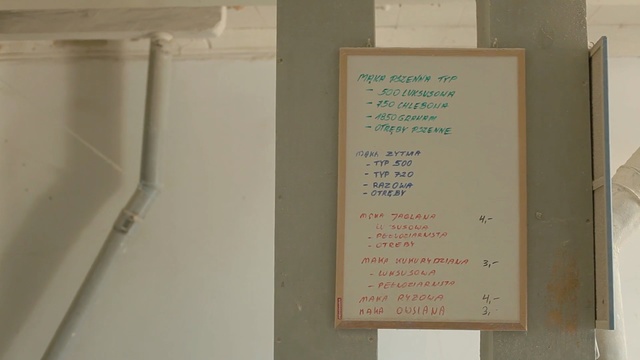 MĄKA PSZENNA TYP
- 500 LUKSUSOWA
- 750 CHLEBOWA
- 1850 GRAHAM
- OTRĘBY PSZENNE
MĄKA ŻYTNIA
- TYP 500
- TYP 720
- RAZOWA
- OTRĘBY
MĄKA JAGLANA 4,-
- PEŁNOZIARNISTA
- OTRĘBY
MĄKA KUKURYDZIANA 3,-
- LUKSUSOWA
- PEŁNOZIARNISTA
MĄKA RYŻOWA 4,-
MĄKA OWSIANA 3,-